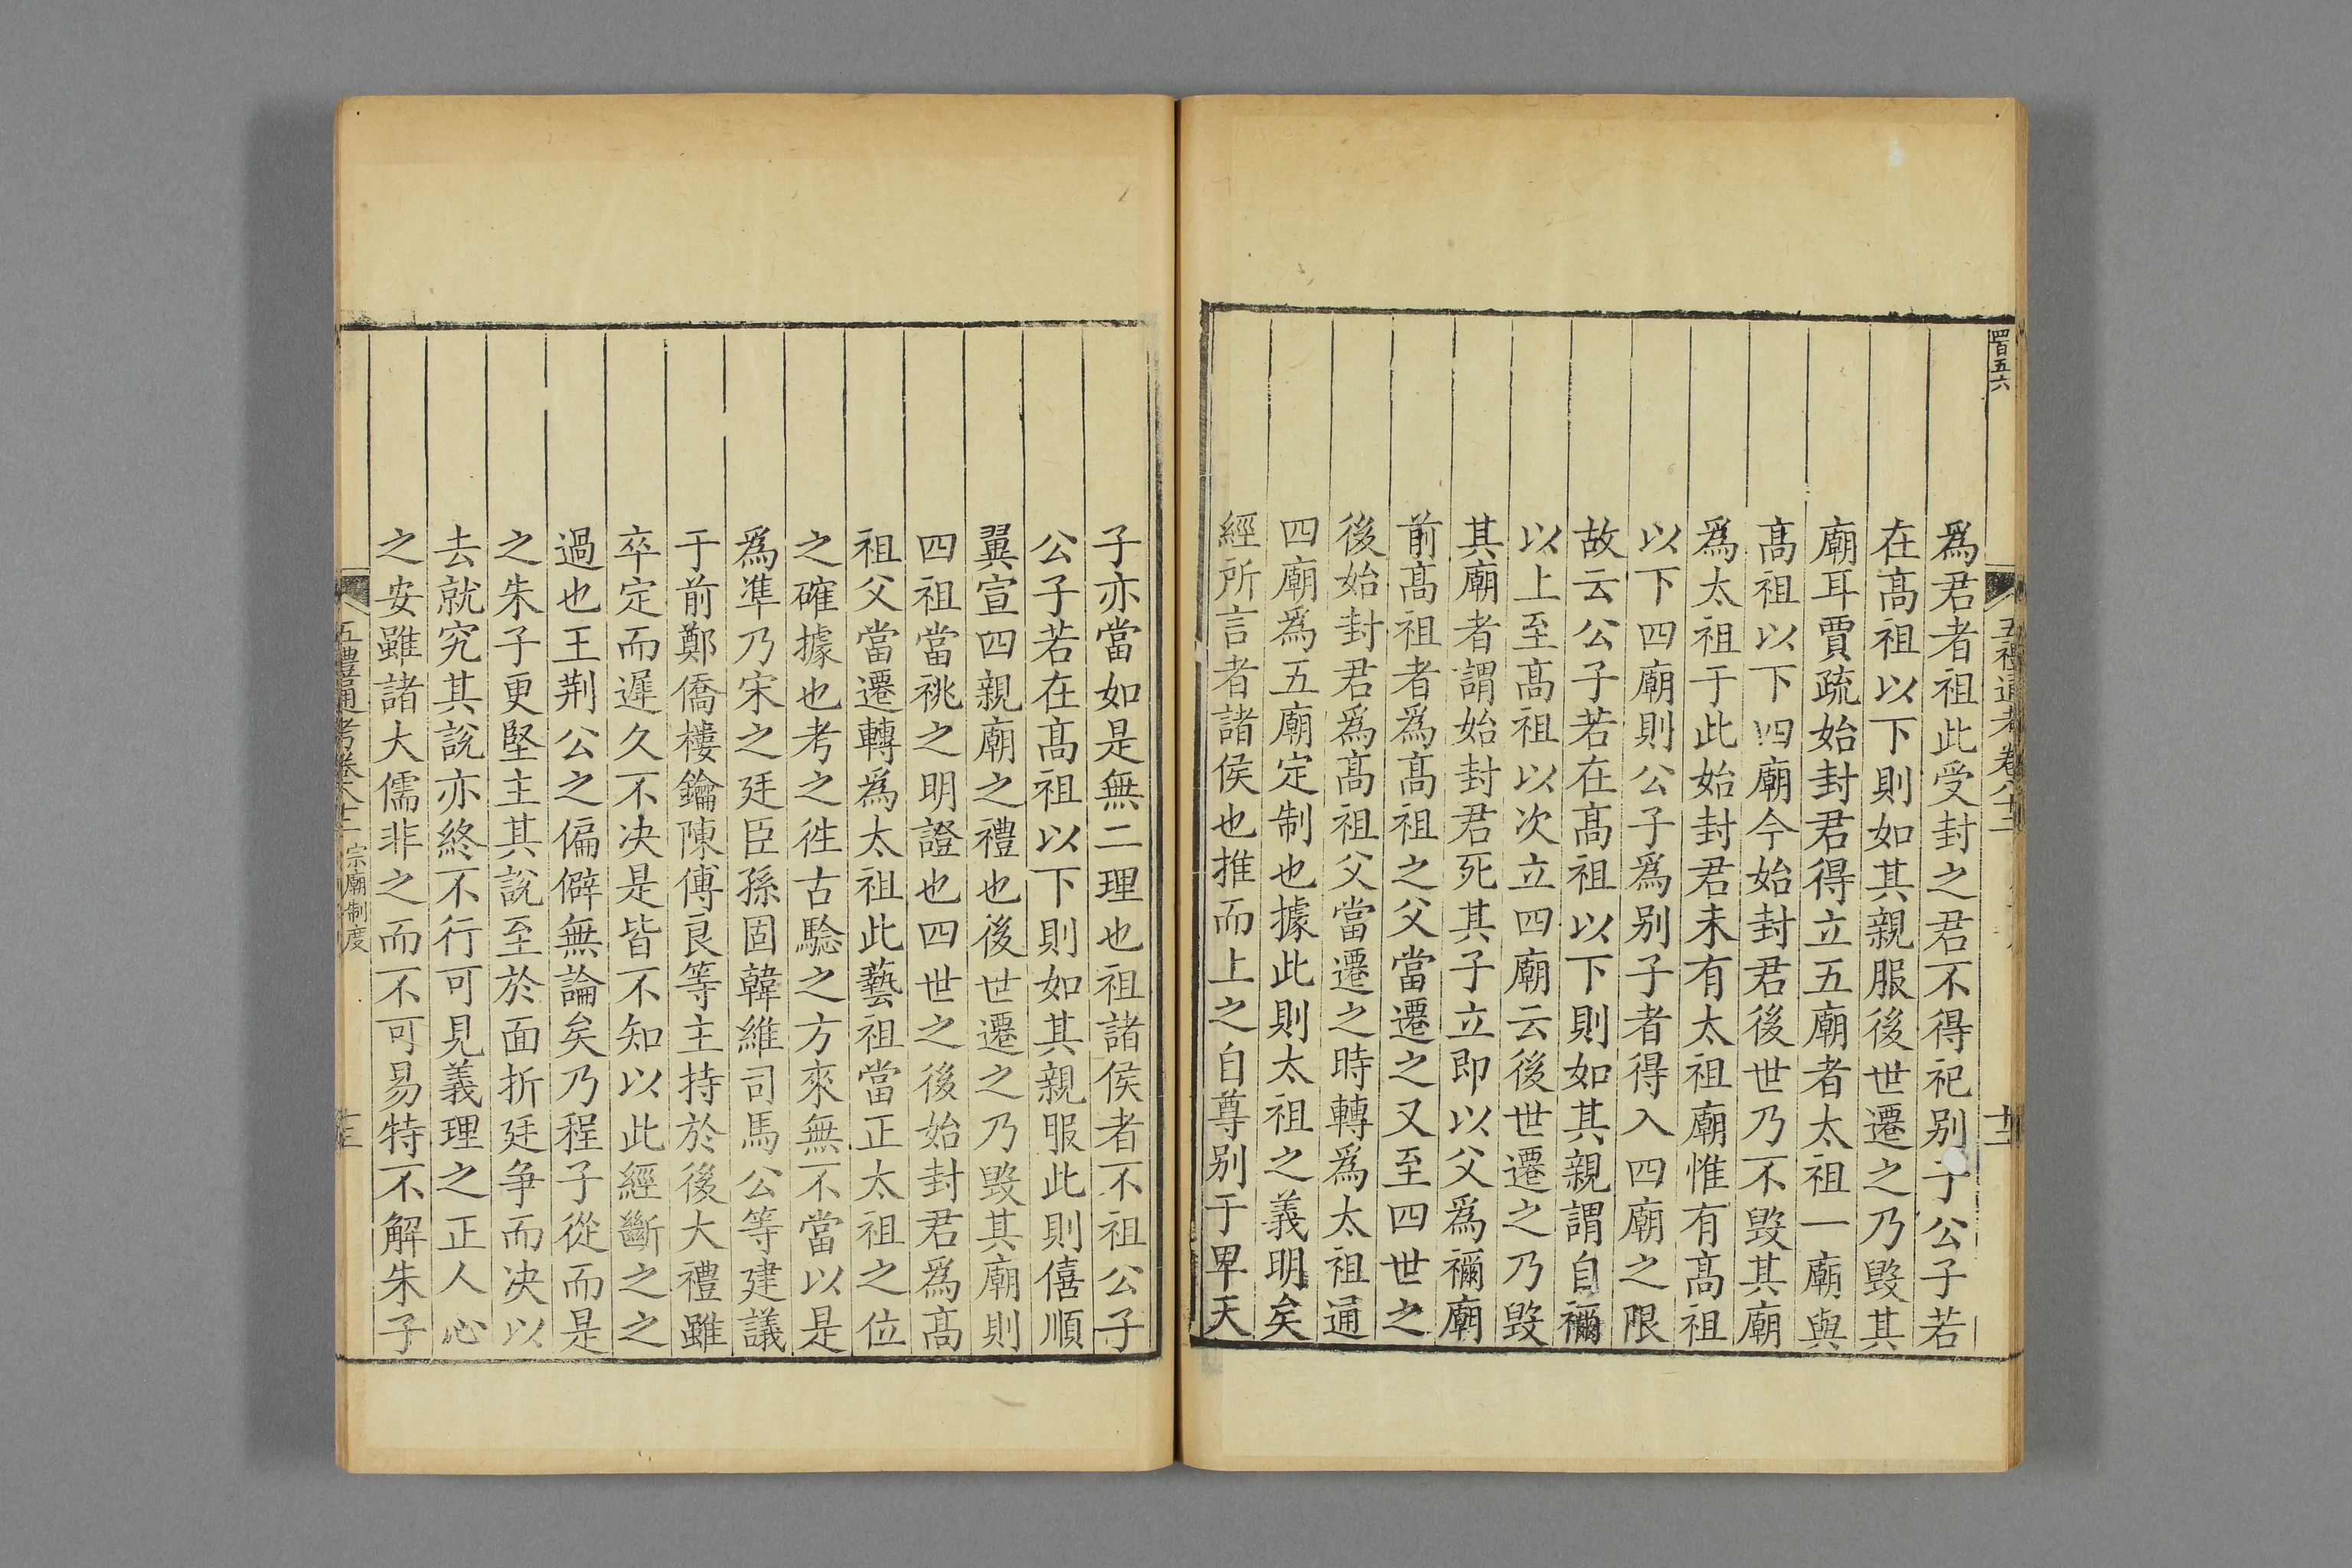 四百五六
五禮通考卷八十二
十二
爲君者祖此受封之君不得祀别子公子若
在髙祖以下則如其親服後世遷之乃毁其
廟耳賈疏始封君得立五廟者太祖一廟與
髙祖以下四廟今始封君後世乃不毁其廟
爲太祖于此始封君未有太祖廟惟有髙祖
以下四廟則公子爲别子者得入四廟之限
故云公子若在髙祖以下則如其親謂自禰
以上至髙祖以次立四廟云後世遷之乃毁
其廟者謂始封君死其子立即以父爲禰廟
前髙祖者爲髙祖之父當遷之又至四世之
後始封君爲髙祖父當遷之時轉爲太祖通
四廟爲五廟定制也據此則太祖之義明矣
經所言者諸侯也推而上之自尊别于卑天
子亦當如是無二理也祖諸侯者不祖公子
公子若在髙祖以下則如其親服此則僖順
翼宣四親廟之禮也後世遷之乃毁其廟則
四祖當祧之明證也四世之後始封君爲髙
祖父當遷轉爲太祖此藝祖當正太祖之位
之確據也考之徃古驗之方來無不當以是
爲準乃宋之廷臣孫固韓維司馬公等建議
于前鄭僑樓鑰陳傅良等主持於後大禮雖
卒定而遲久不决是皆不知以此經斷之之
過也王荆公之偏僻無論矣乃程子從而是
之朱子更堅主其說至於面折廷争而决以
去就究其說亦終不行可見義理之正人心
之安雖諸大儒非之而不可易特不解朱子
五禮通考卷八十二 宗廟制度